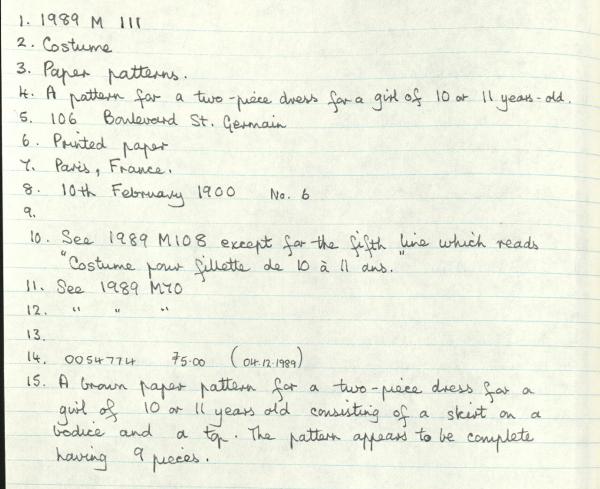 1. 1989 M 111
2. Costume
3. Paper patterns.
4. A pattern for a two-piece dress for a girl of 10 or 11 years-old.
5. 106 Boulevard St. Germain
6. Printed paper
7. Paris, France.
8. 10th February 1900 No. 6
9.
10. See 1989 M108 except for the fifth line which reads
"Costume pour fillette de 10 à 11 ans."
11. See 1989 M70
12. " " "
13.
14. 0054774 75.00 (04.12.1989)
15. A brown paper pattern for a two-piece dress for a
girl of 10 or 11 years old consisting of a skirt on a
bodice and a top. The pattern appears to be complete
having 9 pieces.